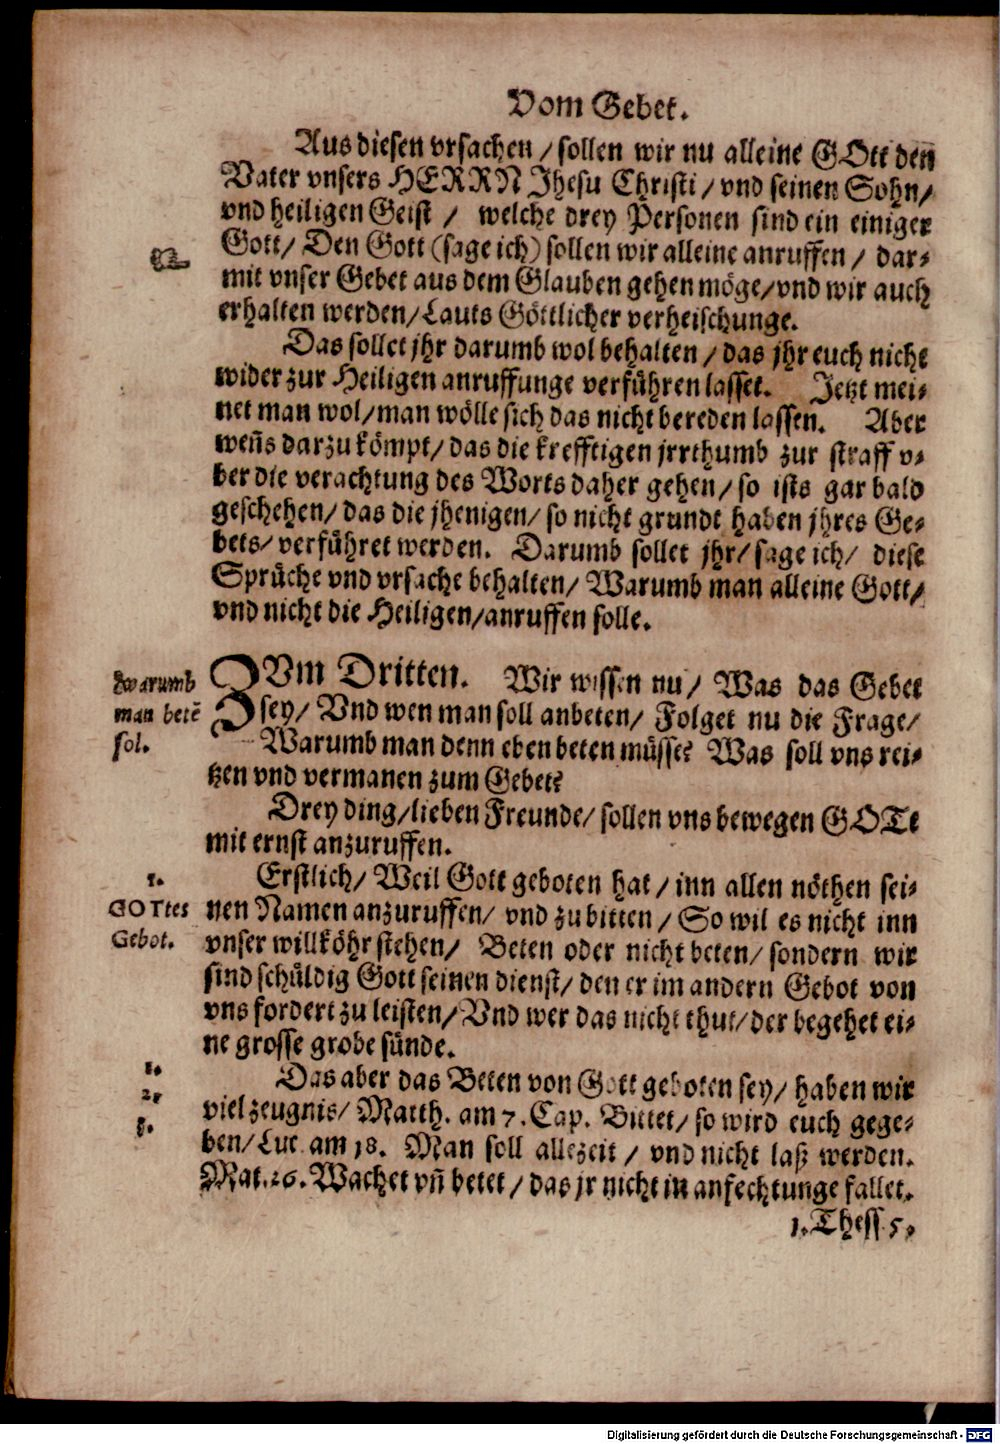 Vom Gebet.
Aus diesen vrsachen / sollen wir nu alleine GOtt den
Vater vnsers HERRN Jhesu Christi / vnd seinen Sohn /
vnd heiligen Geist / welche drey Personen sind ein einiger
Gott / Den Gott (sage ich) sollen wir alleine anruffen / dar-
mit vnser Gebet aus dem Glauben gehen möge / vnd wir auch
erhalten werden / Lauts Göttlicher verheischunge.
Das sollet jhr darumb wol behalten / das jhr euch nicht
wider zur Heiligen anruffunge verführen lasset. Jetzt mei-
net man wol / man wölle sich das nicht bereden lassen. Aber
weñs darzu kömpt / das die krefftigen jrrthumb zur straff v-
ber die verachtung des Worts daher gehen / so ists gar bald
geschehen / das die jhenigen / so nicht grundt haben jhres Ge-
bets / verführet werden. Darumb sollet jhr / sage ich / diese
Sprüche vnd vrsache behalten / Warumb man alleine Gott /
vnd nicht die Heiligen / anruffen solle.
Warumb
man betē
sol.
ZVm Dritten. Wir wissen nu / Was das Gebet
sey / Vnd wen man soll anbeten / Folget nu die Frage /
Warumb man denn eben beten müsse? Was soll vns rei-
tzen vnd vermanen zum Gebet?
Drey ding / lieben Freunde / sollen vns bewegen GOTt
mit ernst anzuruffen.
1.
GOTtes
Gebot.
Erstlich / Weil Gott geboten hat / inn allen nöthen sei-
nen Namen anzuruffen / vnd zu bitten / So wil es nicht inn
vnser willköhr stehen / Beten oder nicht beten / sondern wir
sind schüldig Gott seinen dienst / den er im andern Gebot von
vns fordert zu leisten / Vnd wer das nicht thut / der begehet ei-
ne grosse grobe sünde.
1.
2.
3.
Das aber das Beten von Gott geboten sey / haben wir
viel zeugnis / Matth. am 7. Cap. Bittet / so wird euch gege-
ben / Luc. am 18. Man soll allezeit / vnd nicht laß werden.
Mat. 26. Wachet vñ betet / das jr nicht in anfechtunge fallet.
1. Thess 5.
Digitalisierung gefördert durch die Deutsche Forschungsgemeinschaft - DFG